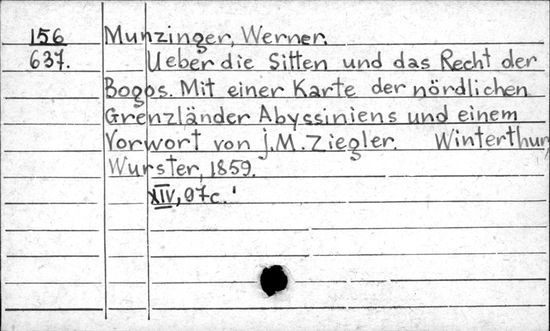 156
637.
Munzinger, Werner.
Ueber die Sitten und das Recht der
Bogos. Mit einer Karte der nördlichen
Grenzländer Abyssiniens und einem
Vorwort von J.M. Ziegler. Winterthur,
Wurster, 1859.
XIV, 97c.